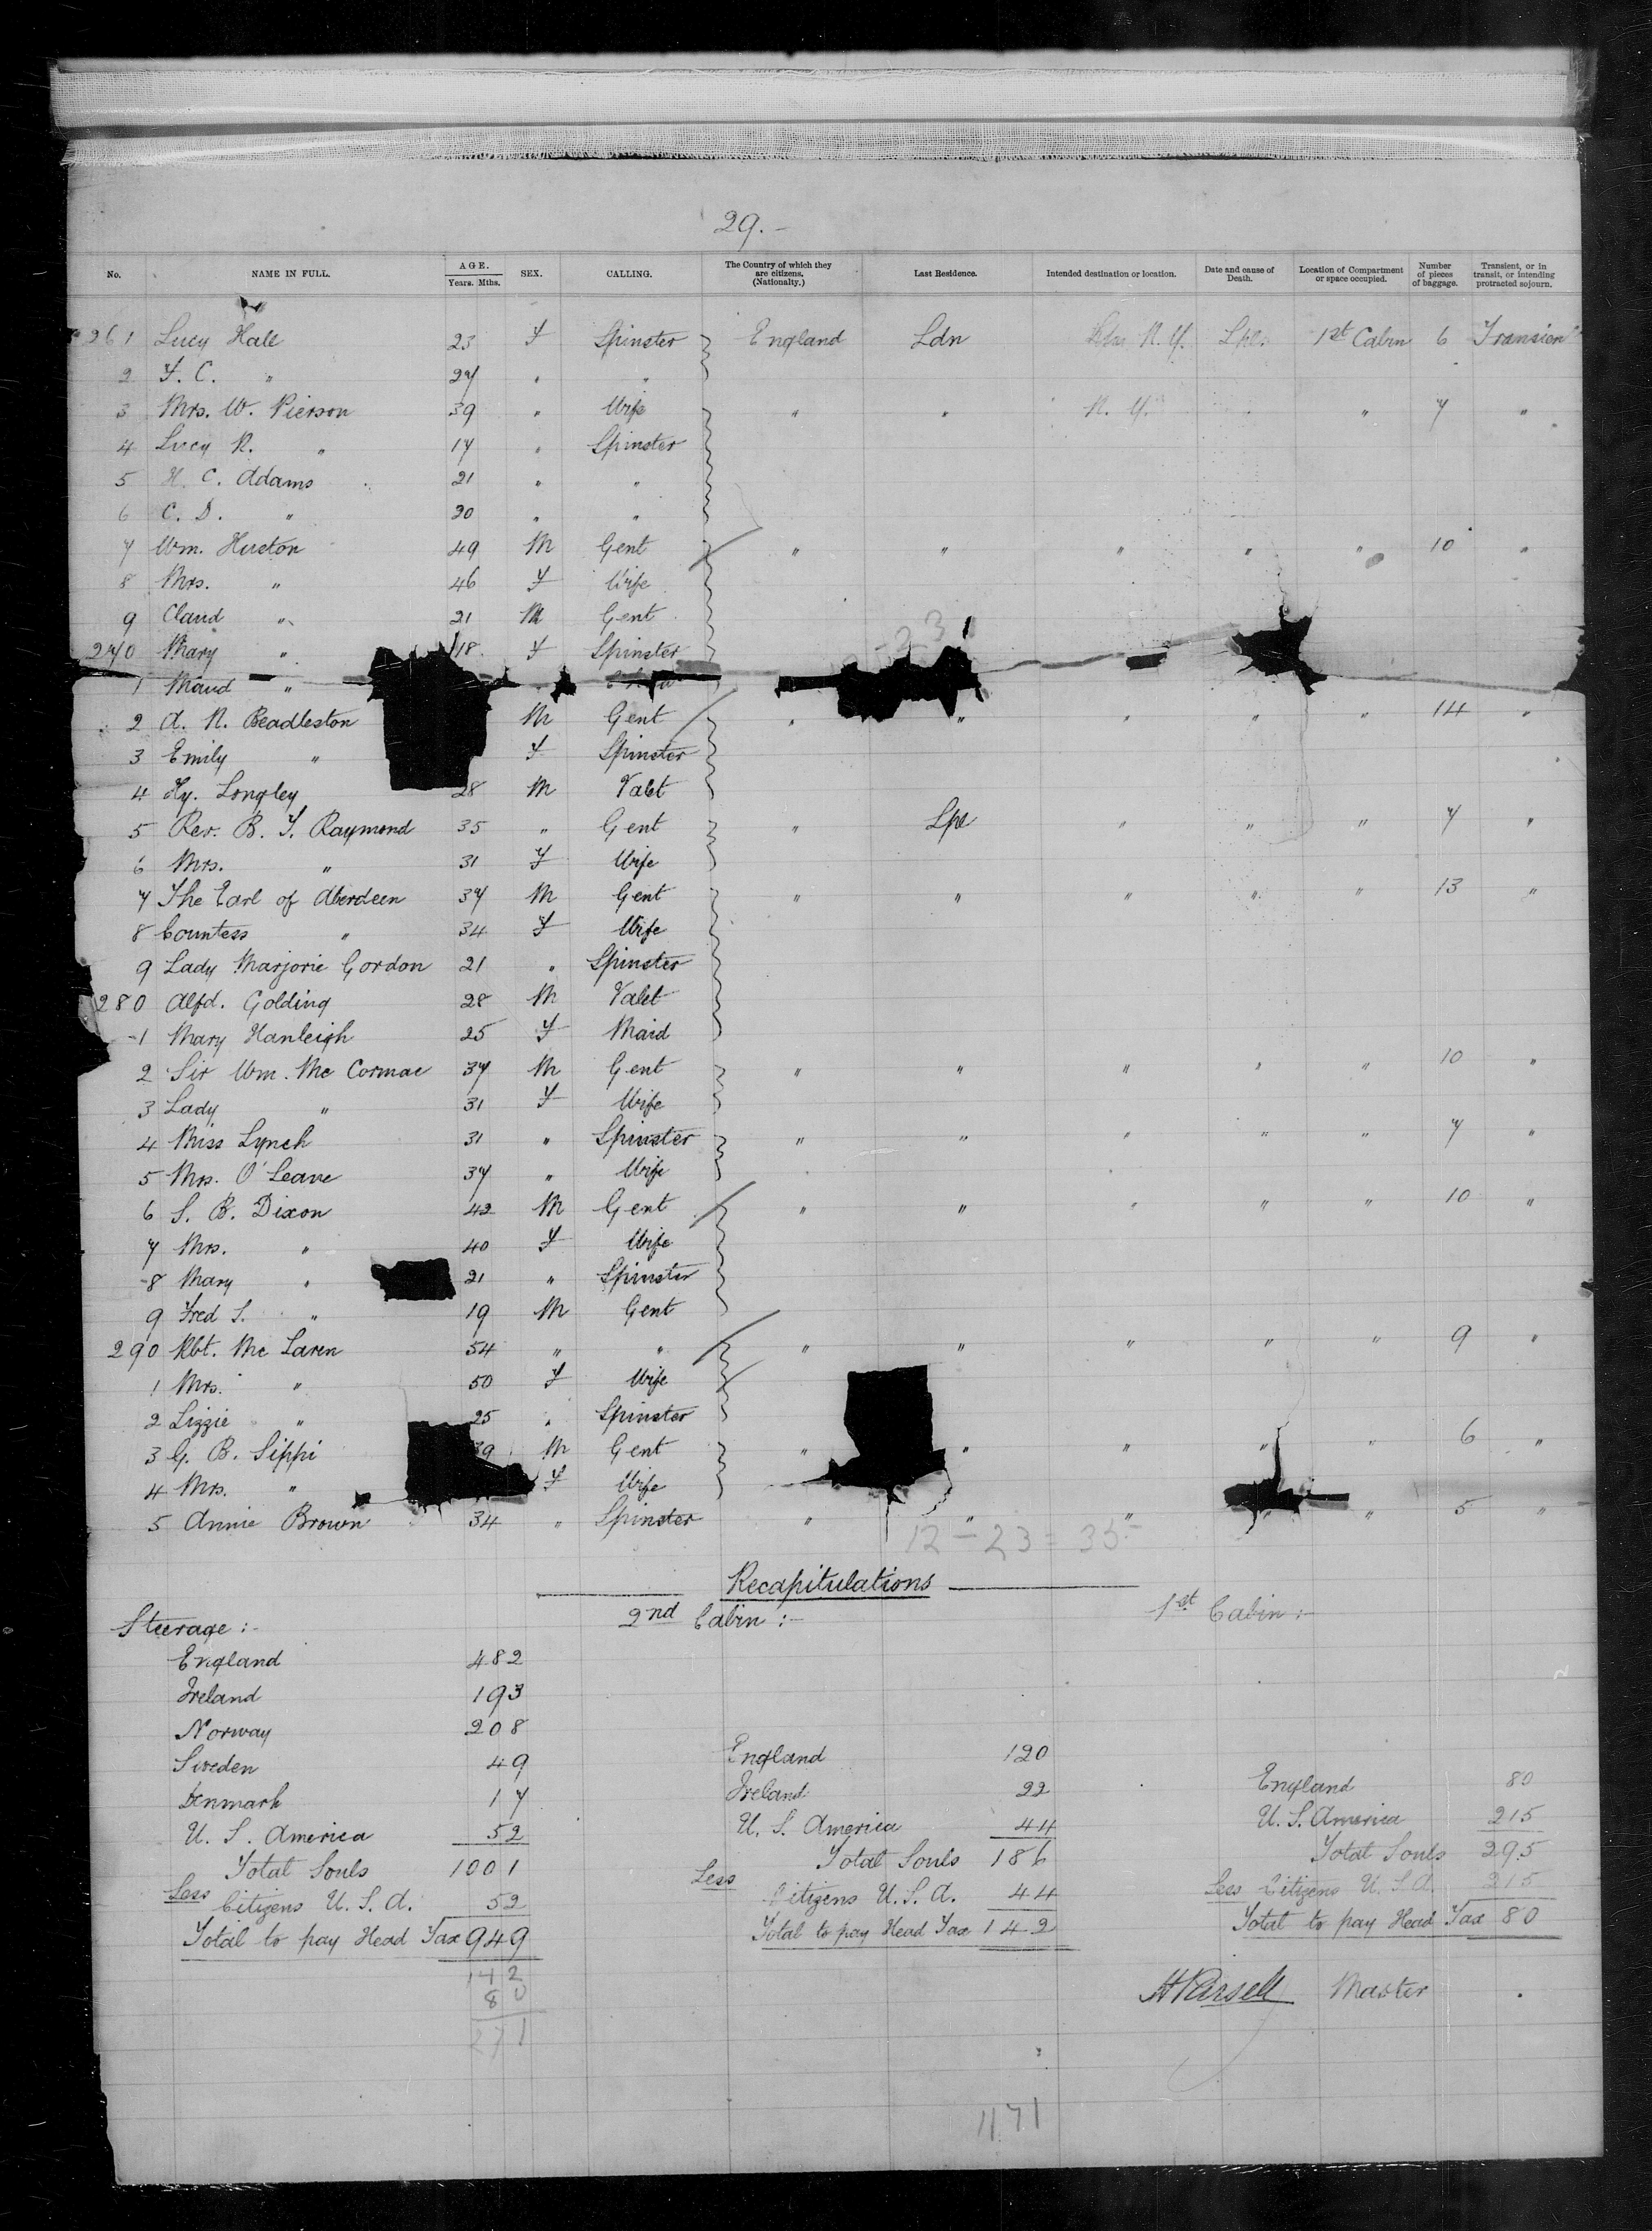 29.-
No. NAME IN FULL. AGE. Years. Mths. SEX. CALLING. The Country of which they are citizens. (Nationalty.) Last Residence. Intended destination or location. Date and cause of Death. Location of Compartment or space occupied. Number of pieces of baggage. Transient, or in transit, or intending protracted sojourn.
261 Lucy Hall 23 F Spinster England Ldn N. Y. 1st Cabin 6 Transient
2 F. C. " 27 " "
3 Mrs. W. Pierson 39 " Wife " " N. Y. " 7 "
4 Lucy R. " 17 " Spinster
5 H. C. Adams 21 " "
6 C. D. " 20 " "
7 Wm. Huston 49 M Gent " " " " " 10 "
8 Mrs. " 46 F Wife
9 Claud " 21 M Gent
270 Mary " 18 F Spinster
1 Maud "
2 A. N. Beadleston M Gent " " " " " 14 "
3 Emily " F Spinster
4 Hy. Longley 28 M Valet
5 Rev. B. F. Raymond 35 " Gent " Lpl " " " 7 "
6 Mrs. " 31 F Wife
7 The Earl of Aberdeen 37 M Gent " " " " " 13 "
8 Countess " 34 F Wife
9 Lady Marjorie Gordon 21 " Spinster
280 Alfd. Golding 28 M Valet
1 Mary Hanleigh 25 F Maid
2 Sir Wm. Mc Cormac 37 M Gent " " " " " 10 "
3 Lady " 31 F Wife
4 Miss Lynch 31 " Spinster " " " " " 7 "
5 Mrs. O'Leane 37 " Wife
6 S. B. Dixon 42 M Gent " " " " " 10 "
7 Mrs. " 40 F Wife
8 Mary " 21 " Spinster
9 Fred S. " 19 M Gent
290 Rbt. Mc Laren 54 " " " " " " " 9 "
1 Mrs. " 50 F Wife
2 Lizzie " 25 " Spinster
3 G. B. Sippi 39 M Gent " " " " " 6 "
4 Mrs. " F Wife
5 Annie Brown 34 " Spinster " " " " " 5 "
12 - 23 = 35-
Recapitulations
Steerage :- 2nd Cabin :- 1st Cabin :-
England 482
Ireland 193
Norway 208
Sweden 49 England 120
Denmark 17 Ireland 22 England 80
U. S. America 52 U. S. America 44 U. S. America 215
Total Souls 1001 Total Souls 186 Total Souls 295
Less Citizens U. S. A. 52 Less Citizens U. S. A. 44 Less Citizens U. S. A. 215
Total to pay Head Tax 949 Total to pay Head Tax 142 Total to pay Head Tax 80
142
80
271
H Parsell Master
1171